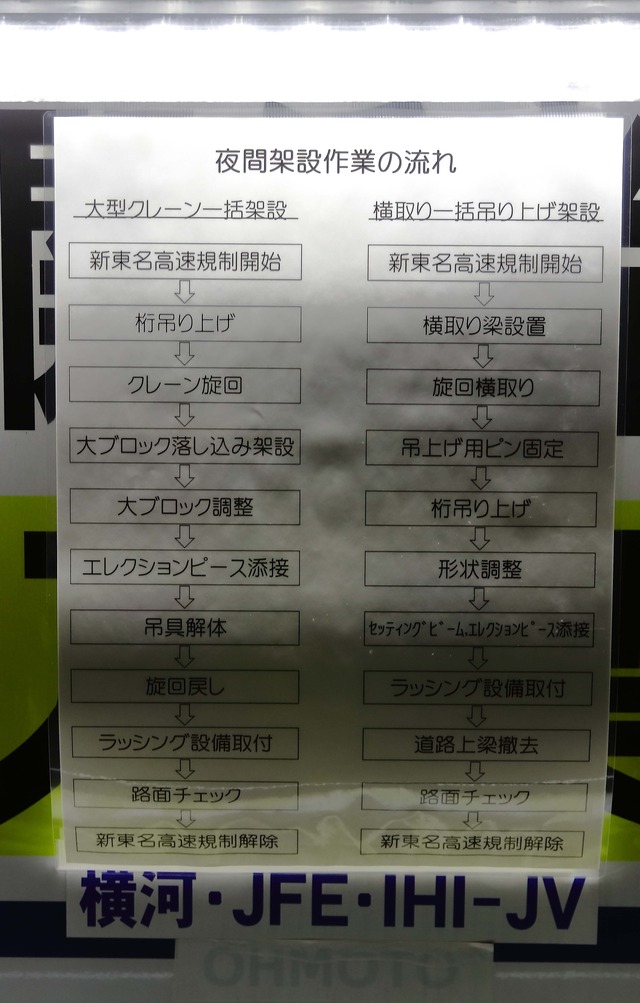 夜間架設作業の流れ
大型クレーン一括架設
新東名高速規制開始
桁吊り上げ
クレーン旋回
大ブロック落し込み架設
大ブロック調整
エレクションピース添接
吊具解体
旋回戻し
ラッシング設備取付
路面チェック
新東名高速規制解除
横取り一括吊り上げ架設
新東名高速規制開始
横取り梁設置
旋回横取り
吊上げ用ピン固定
桁吊り上げ
形状調整
ｾｯﾃｨﾝｸﾞﾋﾞｰﾑ､ｴﾚｸｼｮﾝﾋﾟｰｽ添接
ラッシング設備取付
道路上梁撤去
路面チェック
新東名高速規制解除
横河・JFE・IHI-JV
OHMOTO